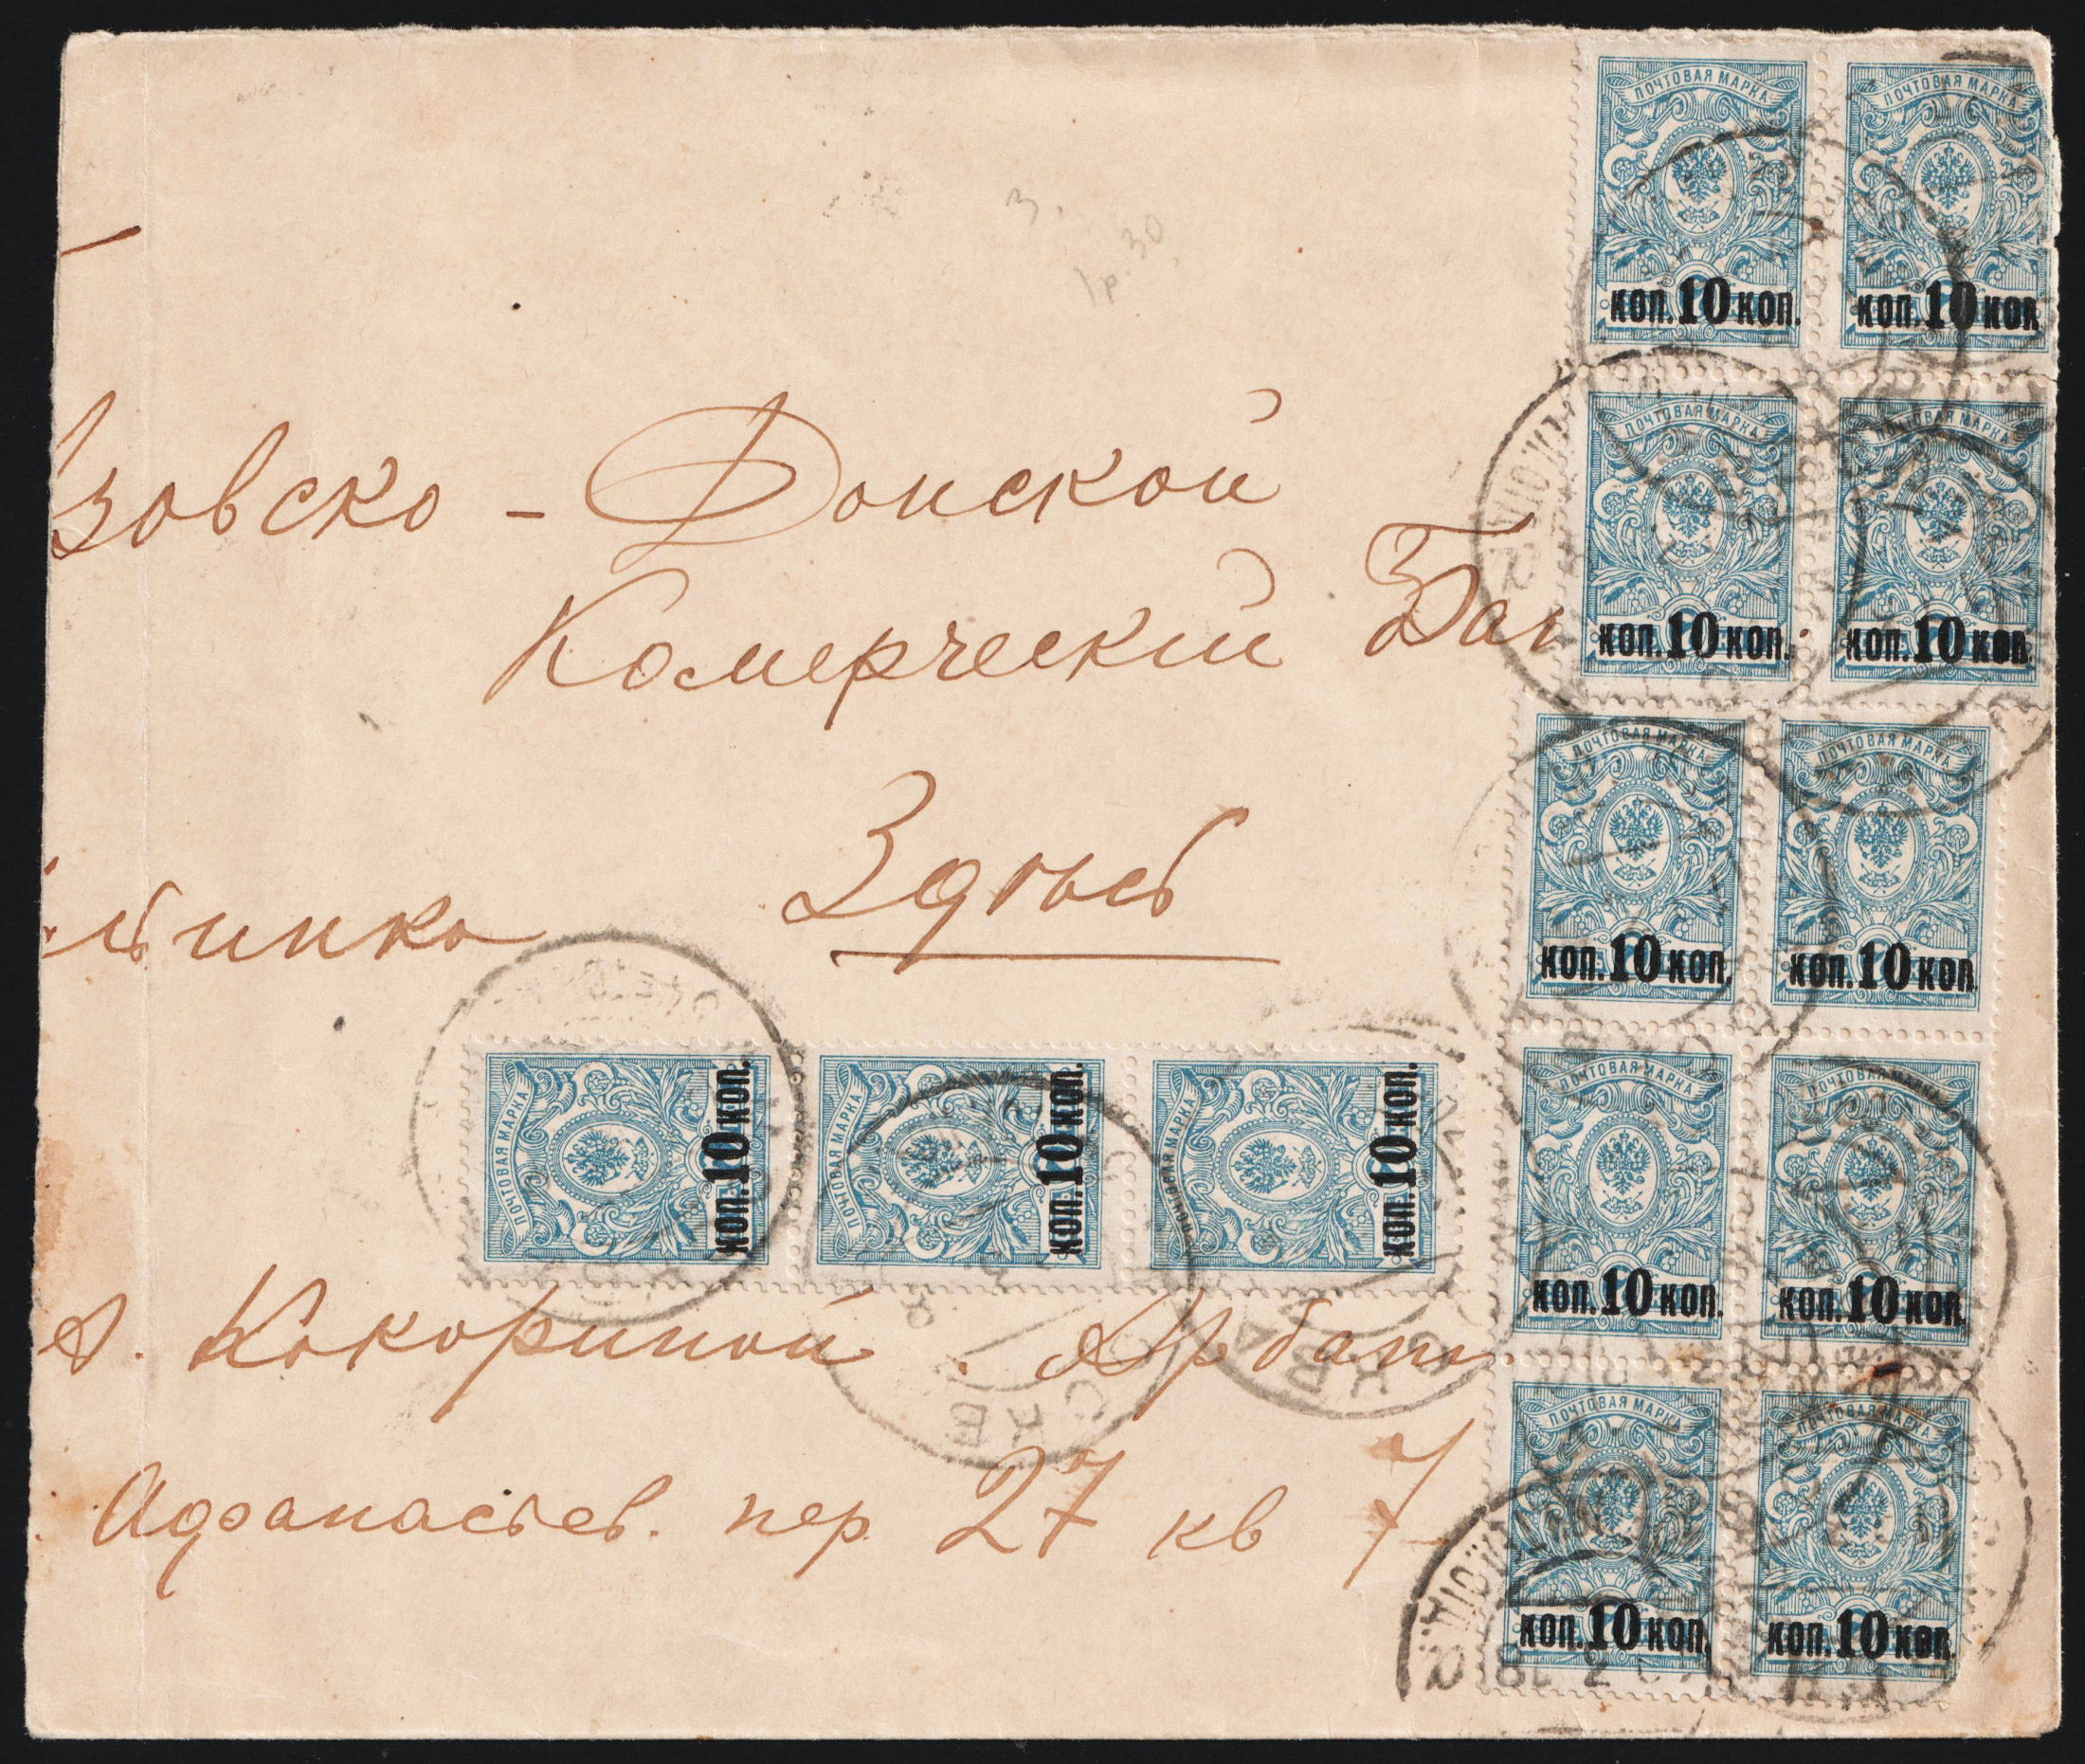 3.
1р.30
зовско - Донской
Комерческий Бан
Здѣсь
ПОЧТОВАЯ МАРКА
коп. 10 коп.
ПОЧТОВАЯ МАРКА
коп. 10 коп
ПОЧТОВАЯ МАРКА
коп. 10 коп.
ПОЧТОВАЯ МАРКА
коп. 10 коп.
ПОЧТОВАЯ МАРКА
коп. 10 коп.
ПОЧТОВАЯ МАРКА
коп. 10 коп
ПОЧТОВАЯ МАРКА
коп. 10 коп.
ПОЧТОВАЯ МАРКА
коп. 10 коп
ПОЧТОВАЯ МАРКА
коп. 10 коп.
ПОЧТОВАЯ МАРКА
коп. 10 коп.
ПОЧТОВАЯ МАРКА
коп. 10 коп.
ПОЧТОВАЯ МАРКА
коп. 10 коп.
ПОЧТОВАЯ МАРКА
коп. 10 коп.
Кокориной. Арбат
Афанасьев. пер. 27 кв 7